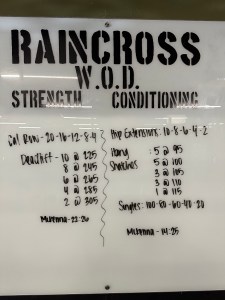 RAINCROSS
W.O.D.
STRENGTH CONDITIONING
Cal Row: 20-16-12-8-4
Deadlift - 10 @ 225
8 @ 245
6 @ 265
4 @ 285
2 @ 305
Mckenna - 22:26
Hip Extensions: 10-8-6-4-2
Hang : 5 @ 95
Snatches 5 @ 100
3 @ 105
3 @ 110
1 @ 115
Singles: 100-80-60-40-20
Mckenna - 14:25